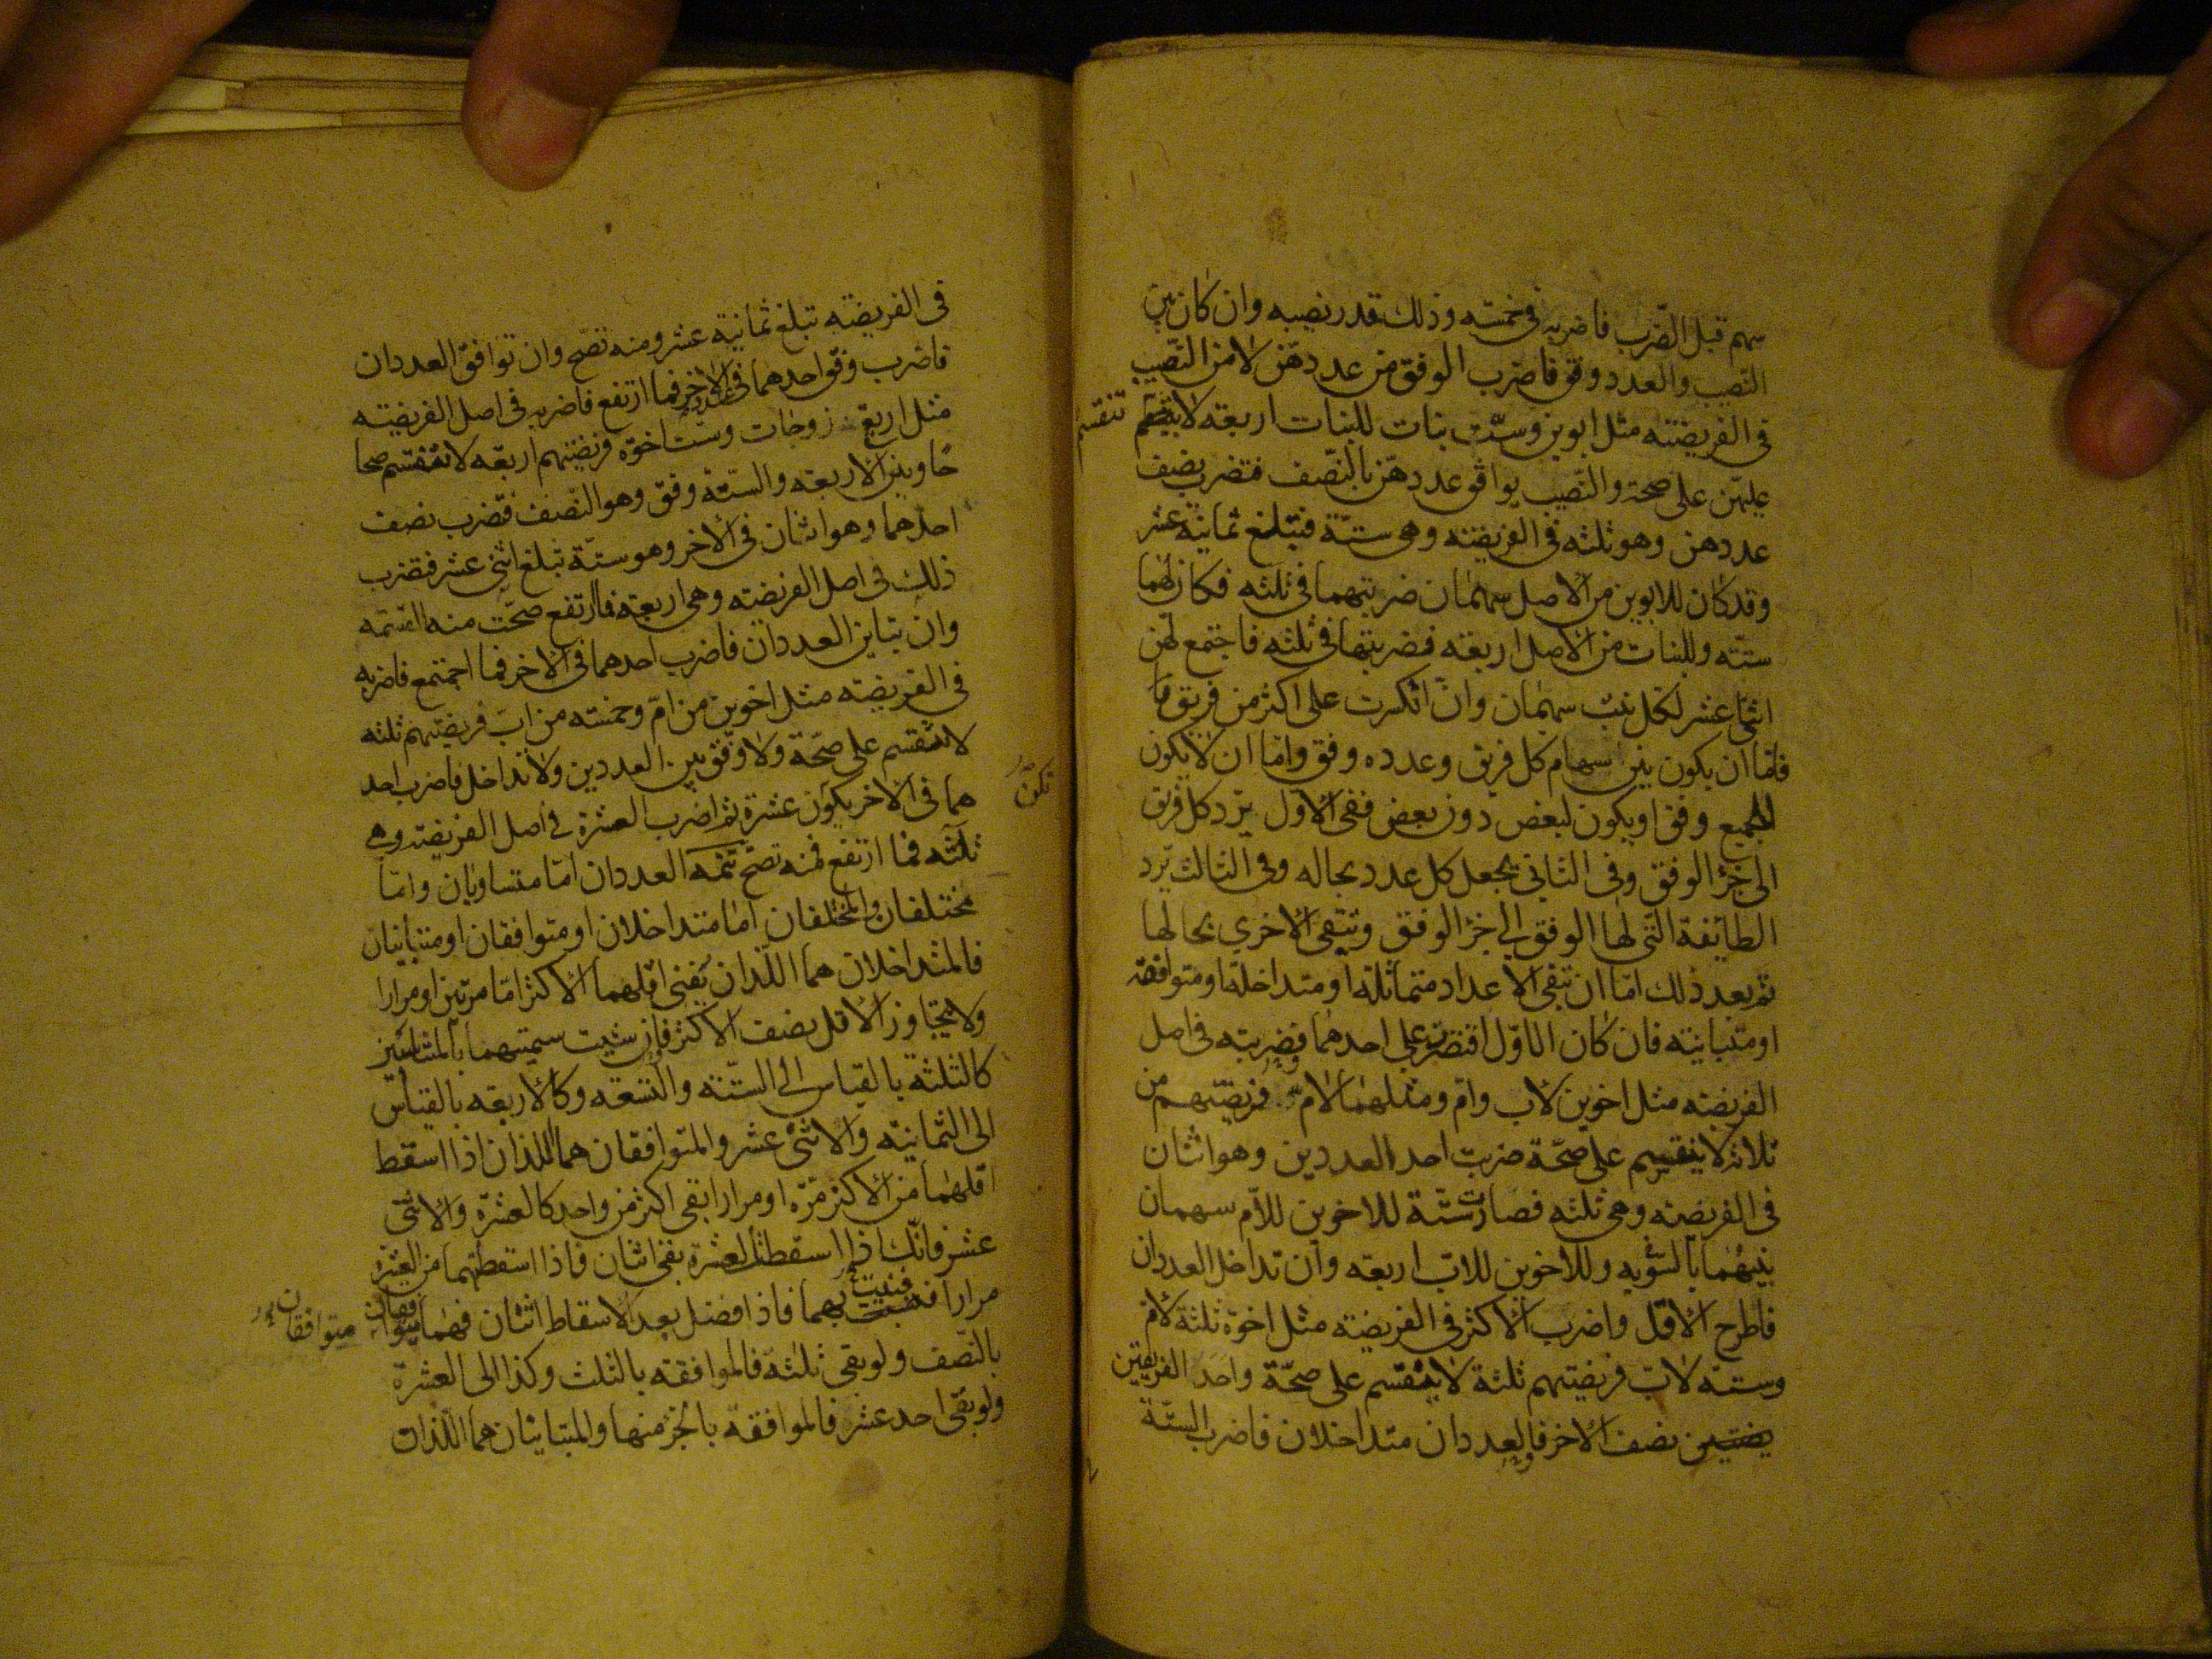 سهم قبل الضرب فاضربه فى خمسته وذلك قدر نصيبه وان كان بين
النصيب والعدد وفق فاضرب الوفق من عددهن لا من النصيب
فى الفريضته مثل ابوين وست بنات للبنات اربعته لا ينقسم
تنقسم
عليهن على صحة والنصيب يوافق عددهن بالنصف فتضرب نصف
عددهن وهو ثلثه فى الفريضته وهى ستة فتبلغ ثمانية عشر
وقد كان للابوين من الاصل سهمان ضربتهما فى ثلثه فكان لهما
ستته وللبنات من الاصل اربعته فضربتها فى ثلثه فاجتمع لهن
اثنى عشر لكل بنت سهمان وان انكسرت على اكثر من فريق
فاما ان يكون بين سهام كل فريق وعدده وفق واما ان لا يكون
للجميع وفق او يكون لبعض دون بعض ففى الاول يرد كل فريق
الى جزء الوفق وفى الثانى يجعل كل عدد بحاله وفى الثالث يرد
الطائفة التى لها الوفق الى جزء الوفق وتبقى الاخرى بحالها
ثم بعد ذلك اما ان تبقى الاعداد متماثلة او متداخلة او متوافقة
او متباينته فان كان الاول اقتصرت على احدهما وضربته فى اصل
الفريضته مثل اخوين لاب وام ومثلهما لام فريضتهم من
ثلاثه لا ينقسم على صحة ضربت احد العددين وهو اثنان
فى الفريضته وهى ثلثه فصارت ستة للاخوين للام سهمان
بينهما بالسويه وللاخوين للاب اربعته وان تداخل العددان
فاطرح الاقل واضرب الاكثر فى الفريضته مثل اخوة ثلثة لام
وستته لاب فريضتهم ثلثة لا ينقسم على صحة واحد الفريقين
نصف الاخر فالعددان متداخلان فاضرب الستة
فى الفريضته تبلغ ثمانية عشر ومنه تصح وان توافق العددان
فاضرب وفق احدهما فى الاخر فما ارتفع فاضربه فى اصل الفريضته
مثل اربع زوجات وست اخوة فريضتهم اربعته لا تنقسم صحا
حا وبين الاربعه والستة وفق وهو النصف فتضرب نصف
احدهما وهو اثنان فى الاخر وهو ستة تبلغ اثنى عشر فتضرب
ذلك فى اصل الفريضته وهى اربعته فما ارتفع صحت منه القسمه
وان تباين العددان فاضرب احدهما فى الاخر فما اجتمع فاضربه
فى الفريضته مثل اخوين من ام وخمسته من اب فريضتهم ثلثه
لا تنقسم على صحة ولا وفق بين العددين ولا تداخل فاضرب احد
هما فى الاخر يكون عشرة ثم اضرب العشرة فى اصل الفريضته وهى
تكون
ثلثه فما ارتفع فمنه تصح تتمه العددان اما متساويان واما
مختلفان والمختلفان اما متداخلان او متوافقان او متباينان
فالمتداخلان هما اللذان يفنى اقلهما الاكثر اما مرتين او مرارا
ولا يتجاوز الاقل نصف الاكثر فان شئت سميتهما بالمتناسبين
كالثلثه بالقياس الى الستته والتسعه وكالاربعه بالقياس
الى الثمانيته والاثنى عشر والمتوافقان هما اللذان اذا اسقط
اقلهما من الاكثر مرة او مرارا بقى اكثر من واحد كالعشرة والاثنى
عشر فانك اذا اسقطت العشرة بقى اثنان فاذا اسقطتهما من العشرة
مرارا فنيت بهما فاذا فضل بعد الاسقاط اثنان فهما متوافقان
متوافقان
بالنصف ولو بقى ثلثه فالموافقه بالثلث وكذا الى العشرة
ولو بقى احد عشر فالموافقة بالجزء منها والمتباينان هما اللذان